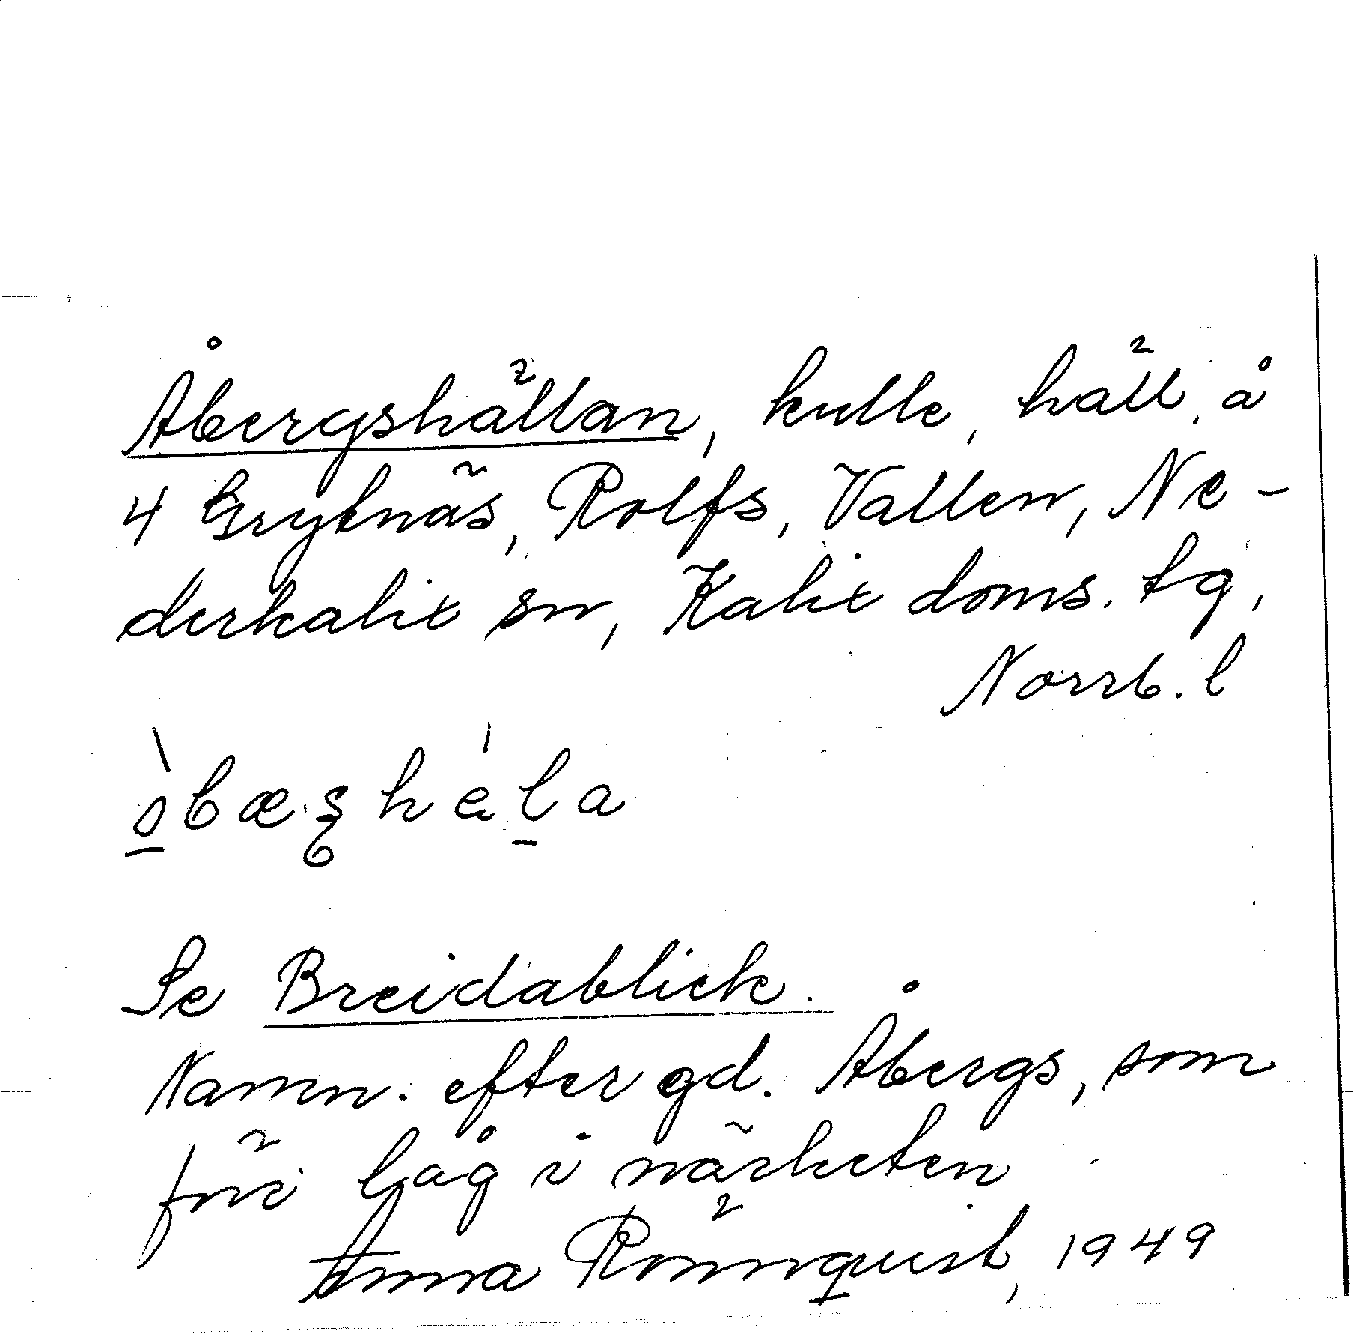 Åbergshällan, kulle, häll, å
4 Grytnäs, Rolfs, Vallen, Ne-
derkalix sn, Kalix doms. tg,
Norrb. l
Se Breidablick.
Namn. efter gd. Åbergs, som
förr låg i närheten
Anna Rönnquist, 1949